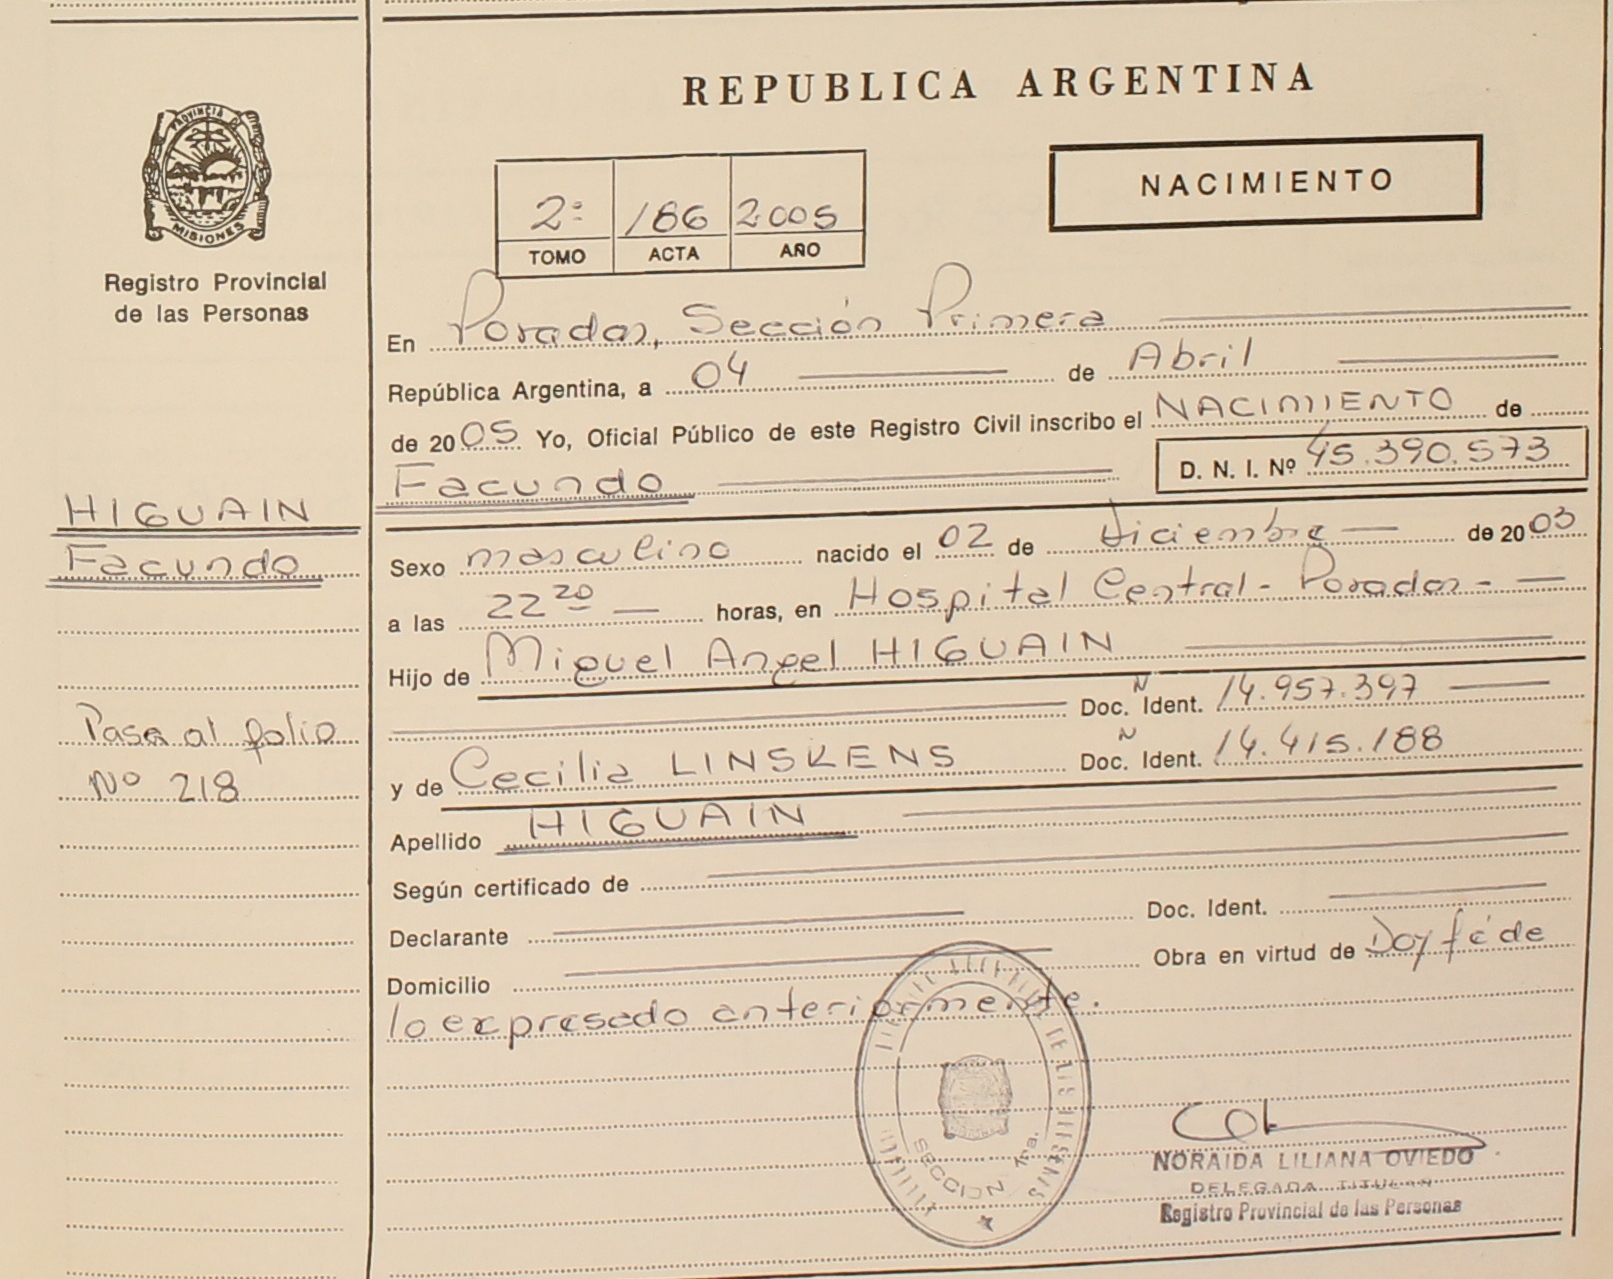 REPUBLICA ARGENTINA
PROVINCIA DE
MISIONES
Registro Provincial
de las Personas
NACIMIENTO
2º 186 2005
TOMO ACTA AÑO
En Posadas, Sección Primera
República Argentina, a 04 de Abril
de 2005 Yo, Oficial Público de este Registro Civil inscribo el NACIMIENTO de
Facundo D. N. I. Nº 45.390.573
HIGUAIN
Facundo
Sexo masculino nacido el 02 de diciembre de 2003
a las 22 20 horas, en Hospital Central - Posadas -
Hijo de Miguel Angel HIGUAIN
Doc. N Ident. 14.957.397
Pasa al folio
Nº 218
y de Cecilia LINSKENS Doc. N Ident. 14.415.188
Apellido HIGUAIN
Según certificado de
Declarante Doc. Ident.
Domicilio Obra en virtud de Doy fé de
lo expresado anteriormente.
SECCION 1ra.
NORAIDA LILIANA OVIEDO
DELEGADA TITULAR
Registro Provincial de las Personas